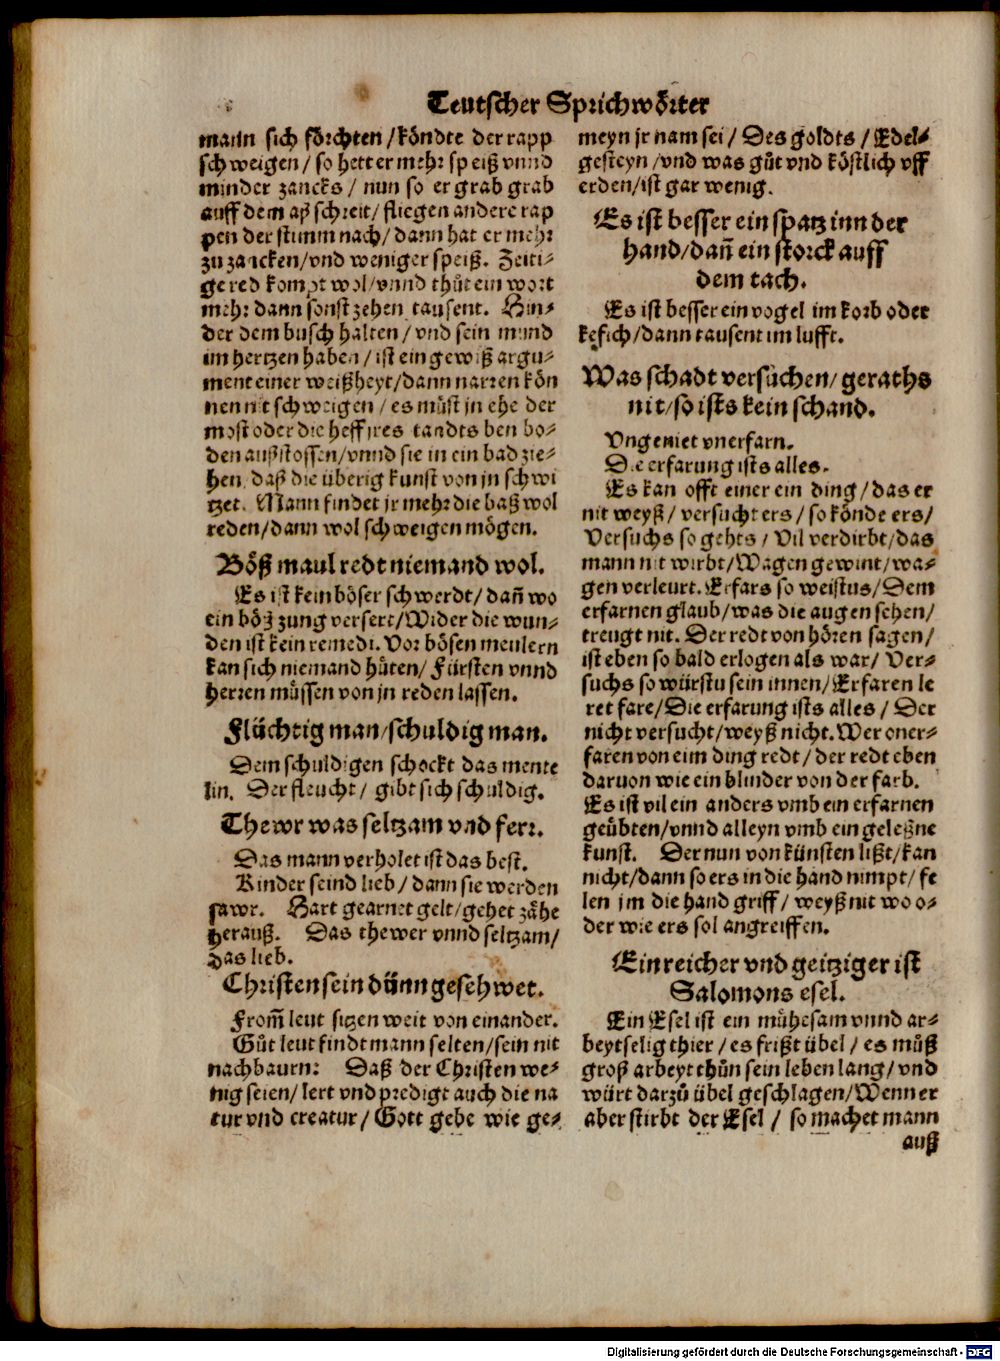 Teutscher Sprichwörter
mann sich förchten / köndte der rapp
schweigen / so hett er mehr speiß vnnd
minder zancks / nun so er grab grab
auff dem aß schreit / fliegen andere rap
pen der stimm nach / dann hat er mehr
zu zancken / vnd weniger speiß. Zeiti-
ge red kompt wol / vnnd thůt ein wort
mehr dann sonst zehen tausent. Hin-
der dem busch halten / vnd sein mund
im hertzen haben / ist ein gewiß argu-
ment einer weißheyt / dann narren kön
nen nit schweigen / es můst jn ehe der
most oder die heff jres tandts den bo-
den außstossen / vnnd sie in ein bad zie-
hen daß die überig kunst von jn schwi
tzet. Mann findet jr mehr die baß wol
reden / dann wol schweigen mögen.
Böß maul redt niemand wol.
Es ist kein böser schwerdt / dañ wo
ein böß zung versert / Wider die wun-
den ist kein remedi. Vor bösen meulern
kan sich niemand hüten / Fürsten vnnd
herren müssen von jn reden lassen.
Flüchtig man / schuldig man.
Dem schuldigen schockt das mente
lin. Der fleucht / gibt sich schuldig.
Thewr was seltzam vnd ferr.
Das mann verholet ist das best.
Kinder seind lieb / dann sie werden
sawr. Hart gearnet gelt / gehet zähe
herauß. Das thewer vnnd seltzam /
das lieb.
Christen sein dünn gesehwet.
From̃ leut sitzen weit von einander.
Gůt leut findt mann selten / sein nit
nachbaurn: Daß der Christen we-
nig seien / lert vnd predigt auch die na
tur vnd creatur / Gott gebe wie ge-
meyn jr nam sei / Des goldts / Edel-
gesteyn / vnd was gůt vnd köstlich vff
erden / ist gar wenig.
Es ist besser ein spatz inn der
hand / dañ ein storck auff
dem tach.
Es ist besser ein vogel im korb oder
kefich / dann tausent im lufft.
Was schadt versůchen / geraths
nit / so ists kein schand.
Vngeniet vnerfarn.
Die erfarung ists alles.
Es kan offt einer ein ding / das er
nit weyß / versucht ers / so könde ers /
Versuchs so gehts / Vil verdirbt / das
mann nit wirbt / Wagen gewint / wa-
gen verleurt. Erfars so weistus / Dem
erfarnen glaub / was die augen sehen /
treugt nit. Der redt von hören sagen /
ist eben so bald erlogen als war / Ver-
suchs so würstu sein innen / Erfaren le
ret fare / Die erfarung ists alles / Der
nicht versucht / weyß nicht. Wer oner-
faren von eim ding redt / der redt eben
daruon wie ein blinder von der farb.
Es ist vil ein anders vmb ein erfarnen
geübten / vnnd alleyn vmb ein geleßne
kunst. Der nun von künsten lißt / kan
nicht / dann so ers in die hand nimpt / fe
len jm die hand griff / weyß nit wo o-
der wie ers sol angreiffen.
Ein reicher vnd geitziger ist
Salomons esel.
Ein Esel ist ein mühesam vnnd ar-
beytselig thier / es frißt übel / es můß
groß arbeyt thůn sein leben lang / vnd
würt darzů übel geschlagen / Wenn er
aber stirbt der Esel / so machet mann
auß
Digitalisierung gefördert durch die Deutsche Forschungsgemeinschaft - DFG